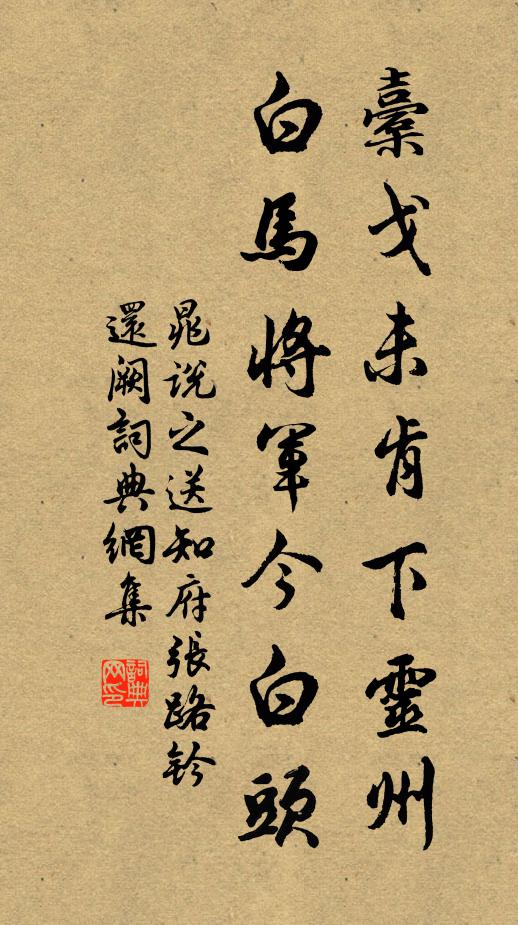 櫜戈未肯下靈州
白馬將軍今白頭
晁說之送知府張路鈐
還闕詞典網集
詞典網印